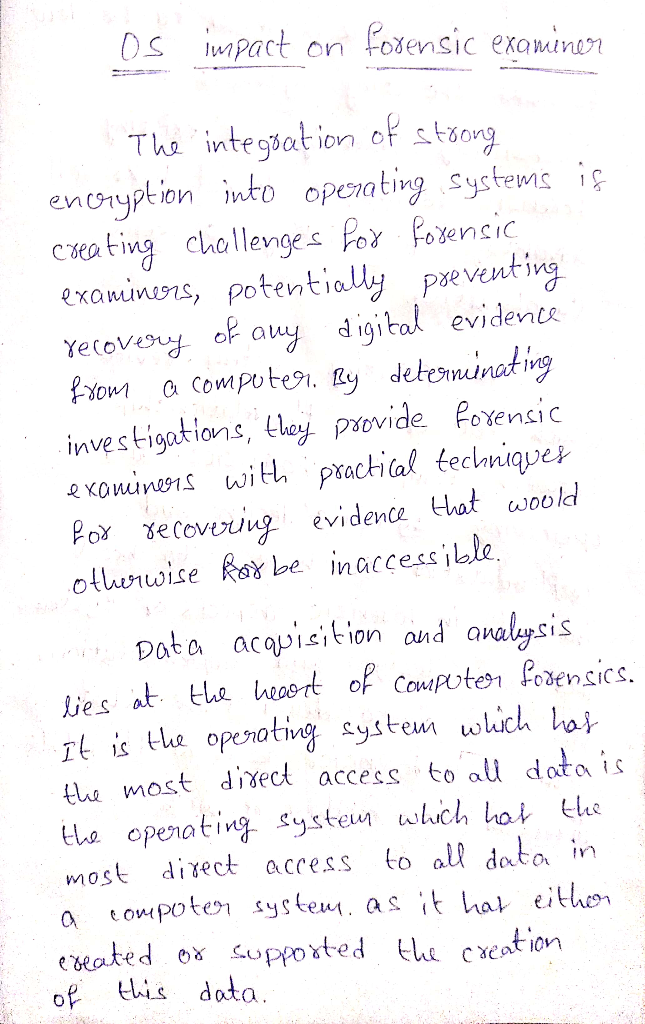 OS impact on forensic examiner
The integration of strong
encryption into operating systems is
creating challenges for forensic
examiners, potentially preventing
recovery of any digital evidence
from a computer. By determinating
investigations, they provide forensic
examiners with practical techniques
for recovering evidence that would
otherwise for be inaccessible.
Data acquisition and analysis
lies at the heart of computer forensics.
It is the operating system which has
the most direct access to all data is
the operating system which has the
most direct access to all data in
a computer system. as it has either
created or supported the creation
of this data.